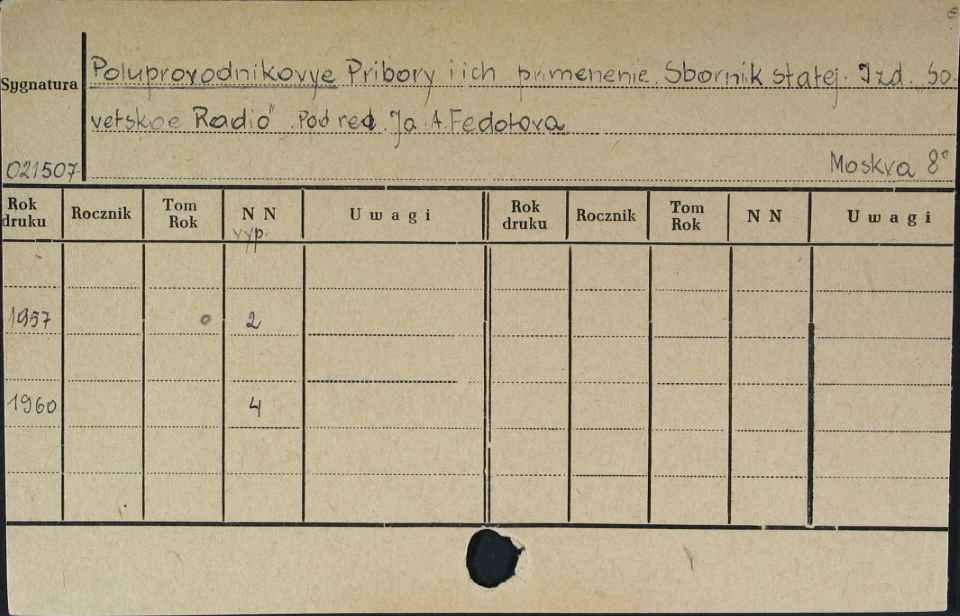 Poluprovodnikovye Pribory i ich primenenie. Sbornik statej. Izd. So-
Sygnatura
vetskoe Radio" Pod red. Ja. A. Fedotova
021507
Moskva 8°
Rok druku Rocznik Tom Rok NN Uwagi Rok druku Rocznik Tom Rok NN Uwagi
vyp.
1957 2
1960 4